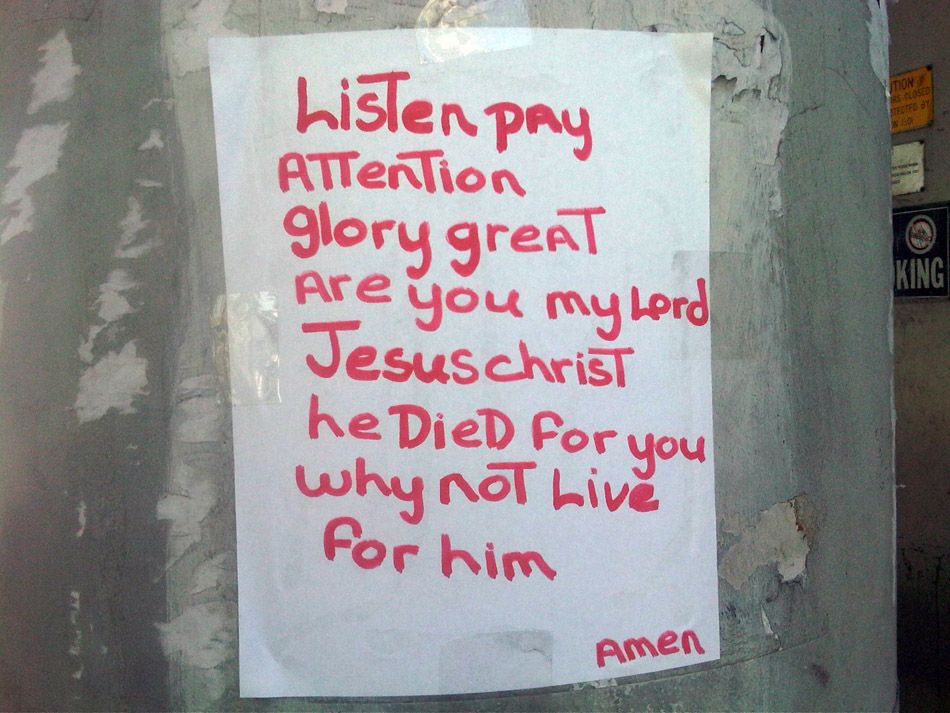 Listen pAy
ATTenTion
glory greAT
Are you my Lord
Jesus christ
he DieD for you
why noT Live
for him
Amen
TION
CLOSED
KING